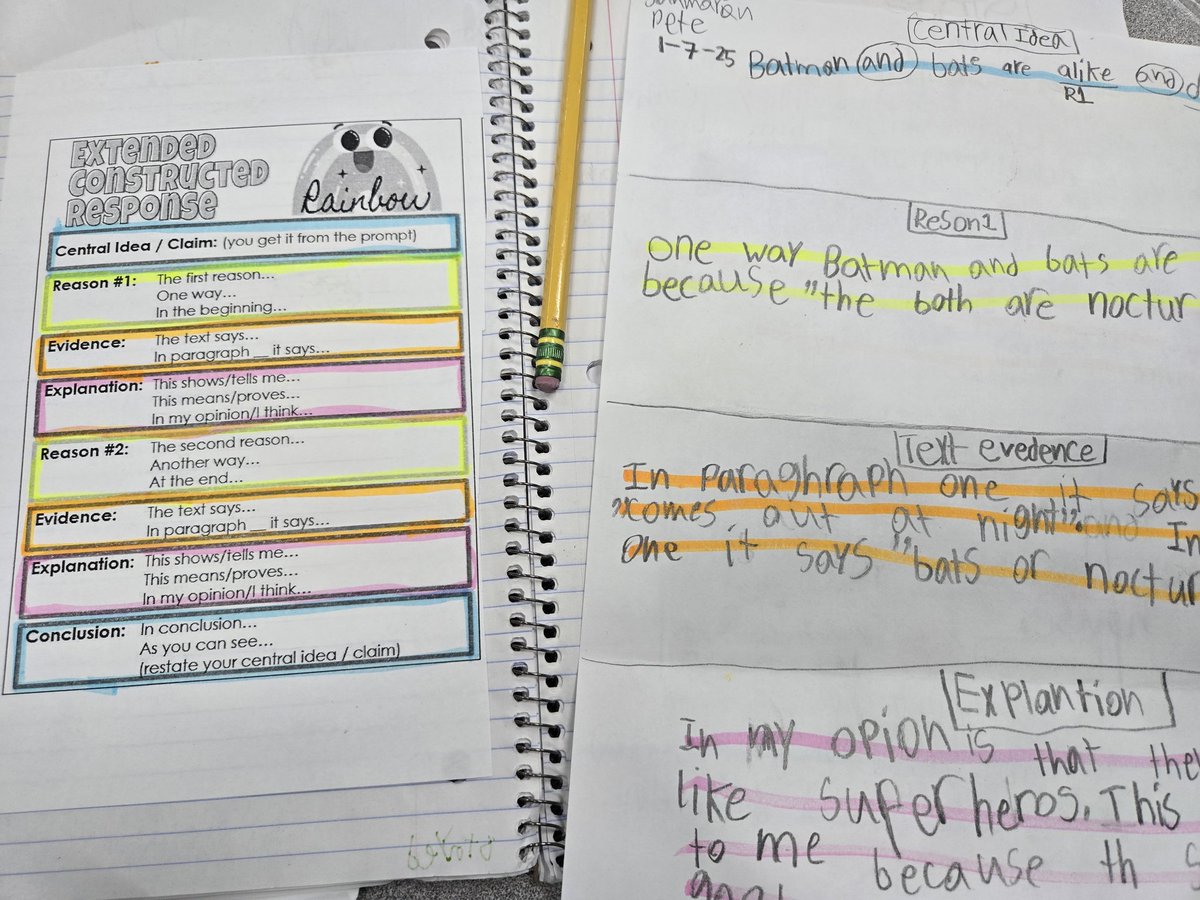 Extended
Constructed
Response
Rainbow
Central Idea / Claim: (you get it from the prompt)
Reason #1: The first reason...
One way...
In the beginning...
Evidence: The text says...
In paragraph __ it says...
Explanation: This shows/tells me...
This means/proves...
In my opinion/I think...
Reason #2: The second reason...
Another way...
At the end...
Evidence: The text says...
In paragraph __ it says...
Explanation: This shows/tells me...
This means/proves...
In my opinion/I think...
Conclusion: In conclusion...
As you can see...
(restate your central idea / claim)
Pete
1-7-25
Central Idea
Batman and bats are alike and
R1
Reson1
one way Batman and bats are
because "the both are noctur
Text evedence
In paraghraph one it says
"comes out at night". and In
one it says "bats or noctur
Explantion
In my opion is that the
like superheros. This
to me because th